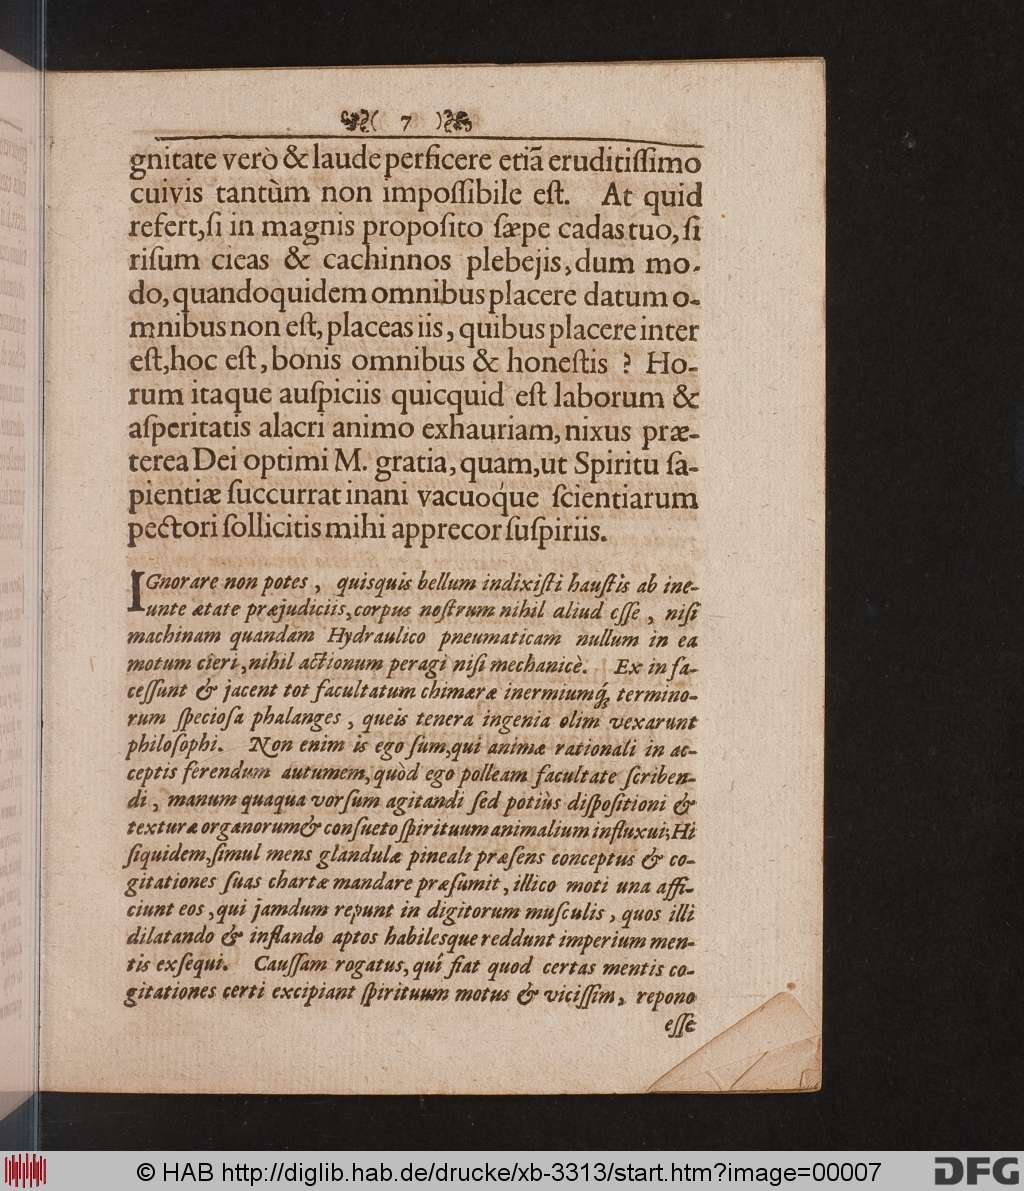 ( 7 )
gnitate verò & laude perficere etiã eruditiſſimo
cuivis tantùm non impoſſibile eſt. At quid
refert, ſi in magnis propoſito ſæpe cadas tuo, ſi
riſum cieas & cachinnos plebejis, dum mo-
do, quandoquidem omnibus placere datum o-
mnibus non eſt, placeas iis, quibus placere inter
eſt, hoc eſt, bonis omnibus & honeſtis ? Ho-
rum itaque auſpiciis quicquid eſt laborum &
aſperitatis alacri animo exhauriam, nixus præ-
terea Dei optimi M. gratia, quam, ut Spiritu ſa-
pientiæ ſuccurrat inani vacuoque ſcientiarum
pectori ſollicitis mihi apprecor ſuſpiriis.
IGnorare non potes, quisquis bellum indixiſti hauſtis ab ine-
unte ætate præjudiciis, corpus noſtrum nihil aliud eſſe, niſi
machinam quandam Hydraulico pneumaticam nullum in ea
motum cieri, nihil actionum peragi niſi mechanicè. Ex in fa-
ceſſunt & jacent tot facultatum chimæræ inermiumq́; termino-
rum ſpecioſa phalanges, queis tenera ingenia olim vexarunt
philoſophi. Non enim is ego ſum, qui animæ rationali in ac-
ceptis ferendum autumem, quòd ego polleam facultate ſcriben-
di, manum quaqua vorſum agitandi ſed potiùs diſpoſitioni &
texturæ organorum & conſueto ſpirituum animalium influxui; Hi
ſiquidem, ſimul mens glandulæ pineali præſens conceptus & co-
gitationes ſuas chartæ mandare præſumit, illico moti una affi-
ciunt eos, qui jamdum repunt in digitorum muſculis, quos illi
dilatando & inflando aptos habilesque reddunt imperium men-
tis exſequi. Cauſſam rogatus, quî fiat quod certas mentis co-
gitationes certi excipiant ſpirituum motus & viciſſim, repono
eſſe
© HAB http://diglib.hab.de/drucke/xb-3313/start.htm?image=00007
DFG